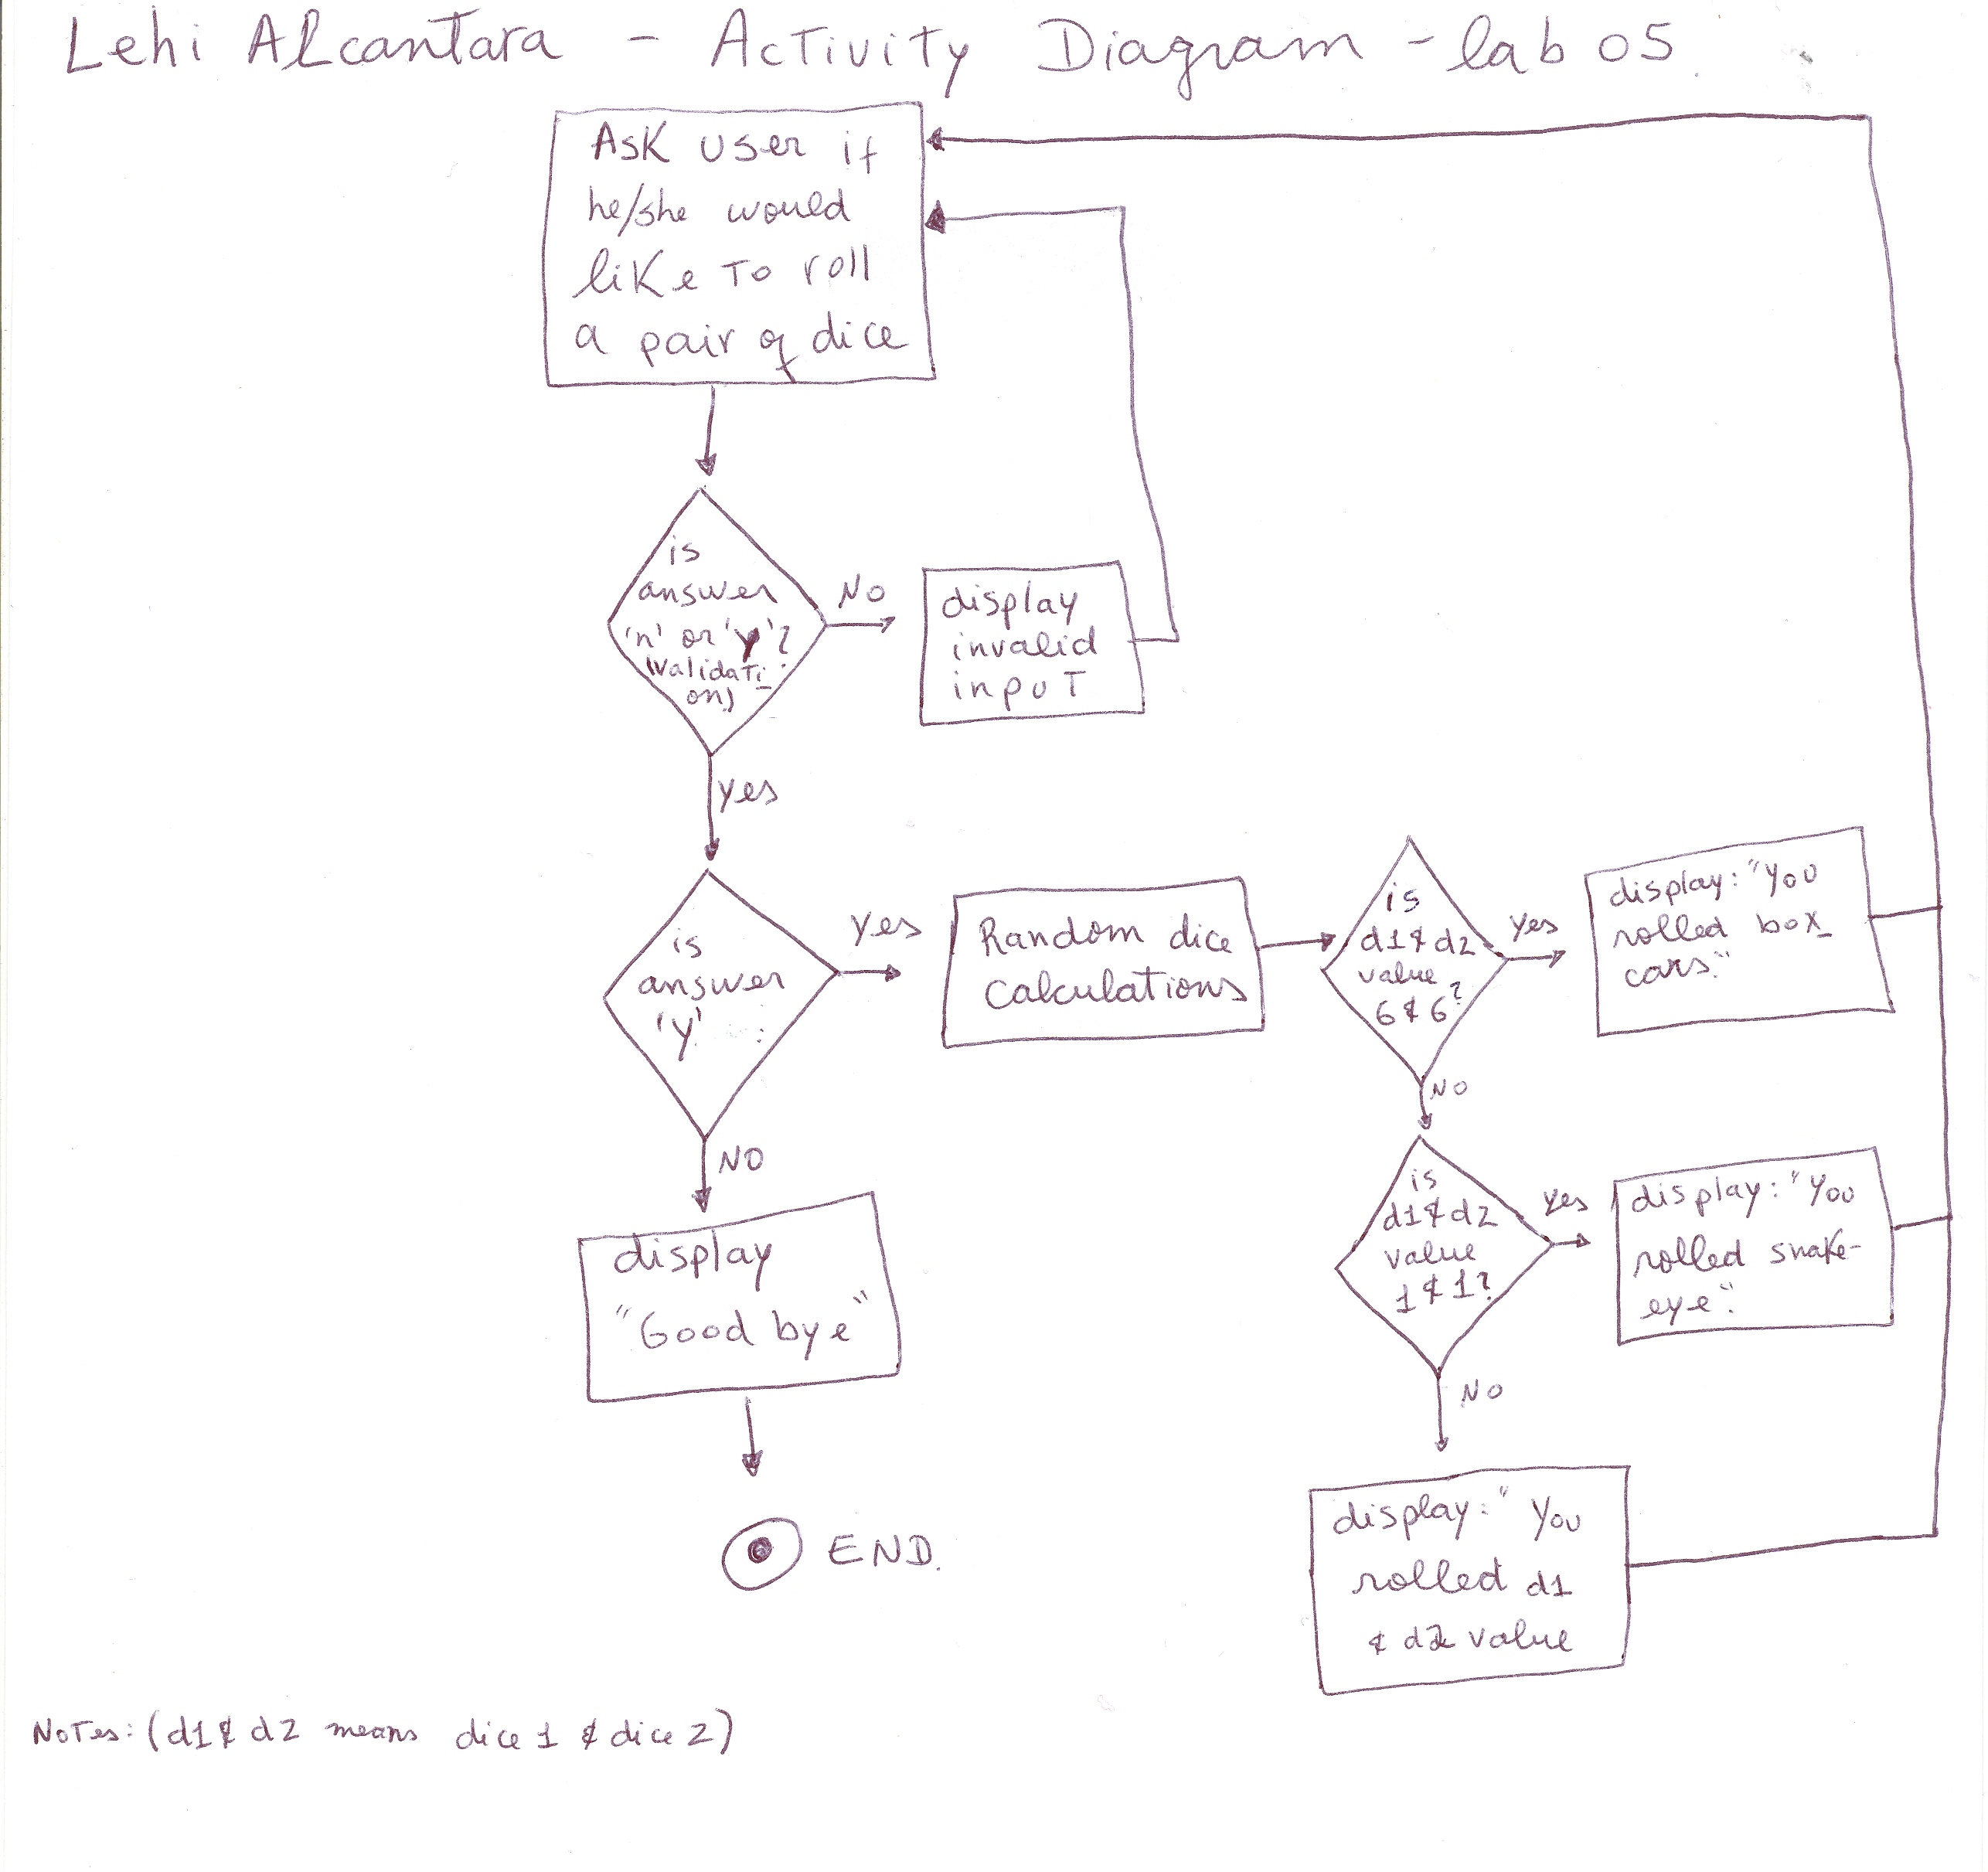 Lehi Alcantara - Activity Diagram - lab 05.
Ask user if
he/she would
like to roll
a pair of dice
is
answer
'n' or 'y'?
(validati-
on)
No
display
invalid
input
yes
is
answer
'y'
yes
Random dice
calculations
is
d1 & d2
value
6 & 6?
yes
display: "you
rolled box_
cars."
No
is
d1 & d2
value
1 & 1?
yes
display: "You
rolled snake-
eye".
No
display: "You
rolled d1
& d2 value
NO
display
"Good bye"
END.
Notes: (d1 & d2 means dice 1 & dice 2)